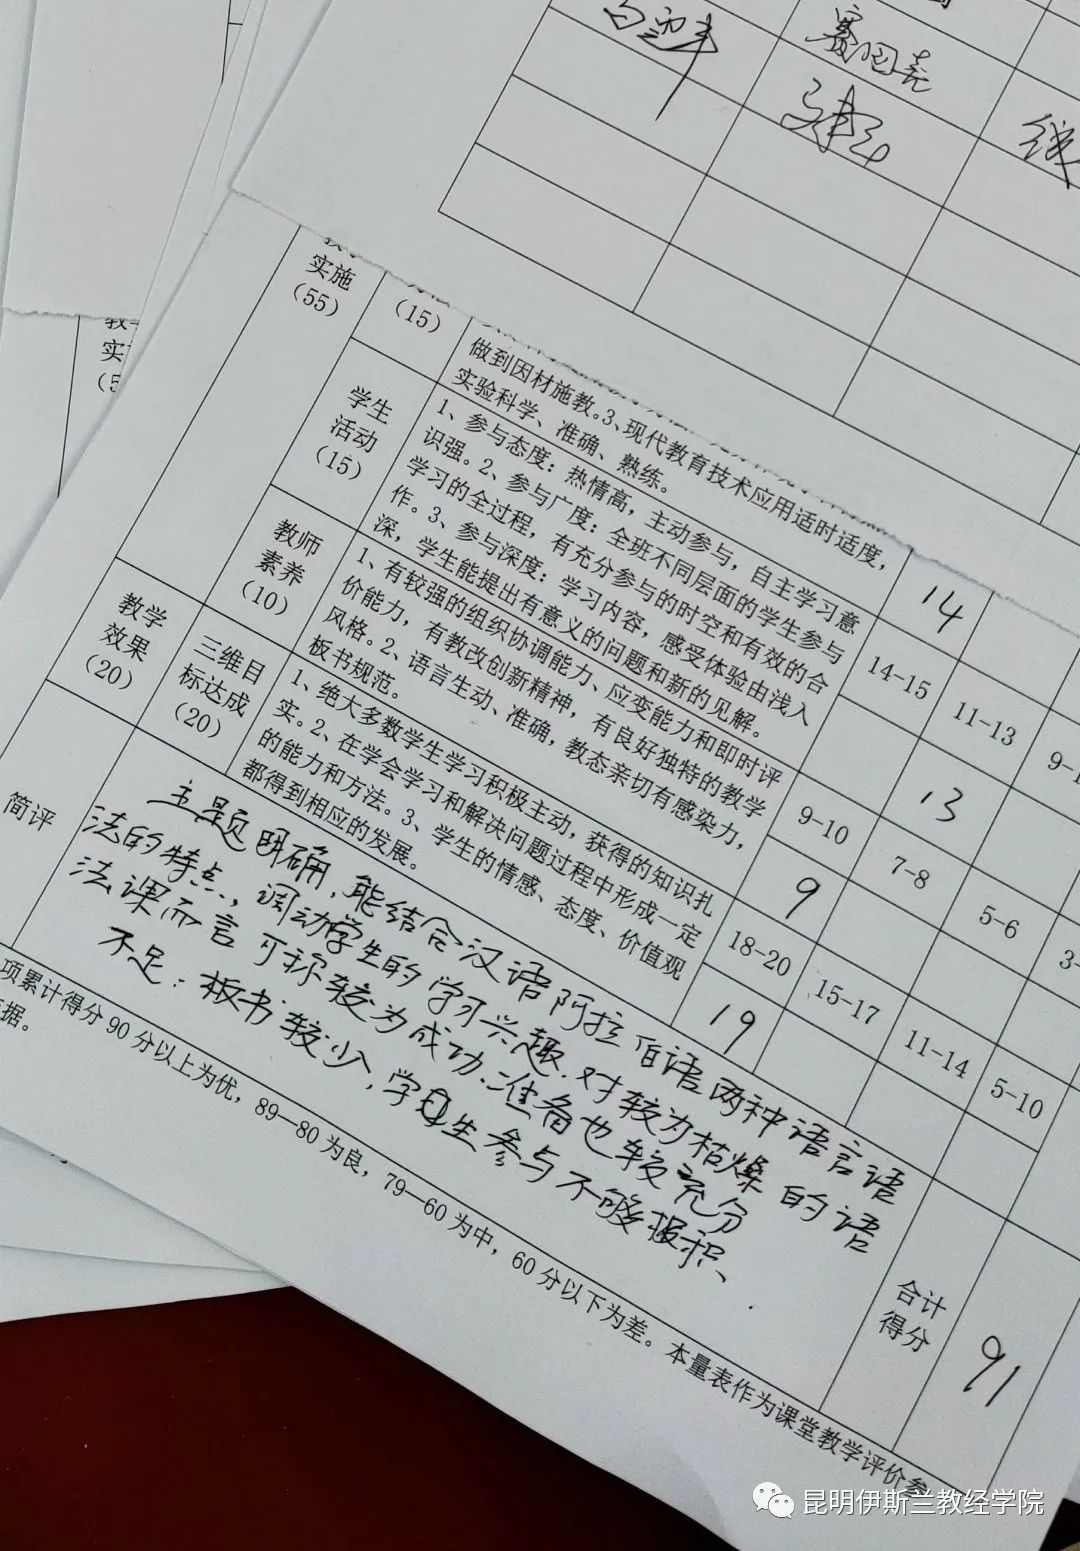 实施
(55)
(15)
做到因材施教。3、现代教育技术应用适时适度，
实验科学、准确、熟练。
14
学生
活动
(15)
1、参与态度：热情高，主动参与，自主学习意
识强。2、参与广度：全班不同层面的学生参与
学习的全过程，有充分参与的时空和有效的合
作。3、参与深度：学习内容，感受体验由浅入
深，学生能提出有意义的问题和新的见解。
14-15
11-13
13
教师
素养
(10)
1、有较强的组织协调能力、应变能力和即时评
价能力，有教改创新精神，有良好独特的教学
风格。2、语言生动、准确，教态亲切有感染力，
板书规范。
9-10
7-8
5-6
9
教学
效果
(20)
三维目
标达成
(20)
1、绝大多数学生学习积极主动，获得的知识扎
实。2、在学会学习和解决问题过程中形成一定
的能力和方法。3、学生的情感、态度、价值观
都得到相应的发展。
18-20
15-17
11-14
5-10
19
简评
主题明确，能结合汉语阿拉伯语两种语言语
法的特点，调动学生的学习兴趣．对较为枯燥的语
法课而言可称较为成功．准备也较充分
不足：板书较少，学生参与不够积极、
合计
得分
91
项累计得分90分以上为优，89—80为良，79—60为中，60分以下为差。本量表作为课堂教学评价参
据。
昆明伊斯兰教经学院